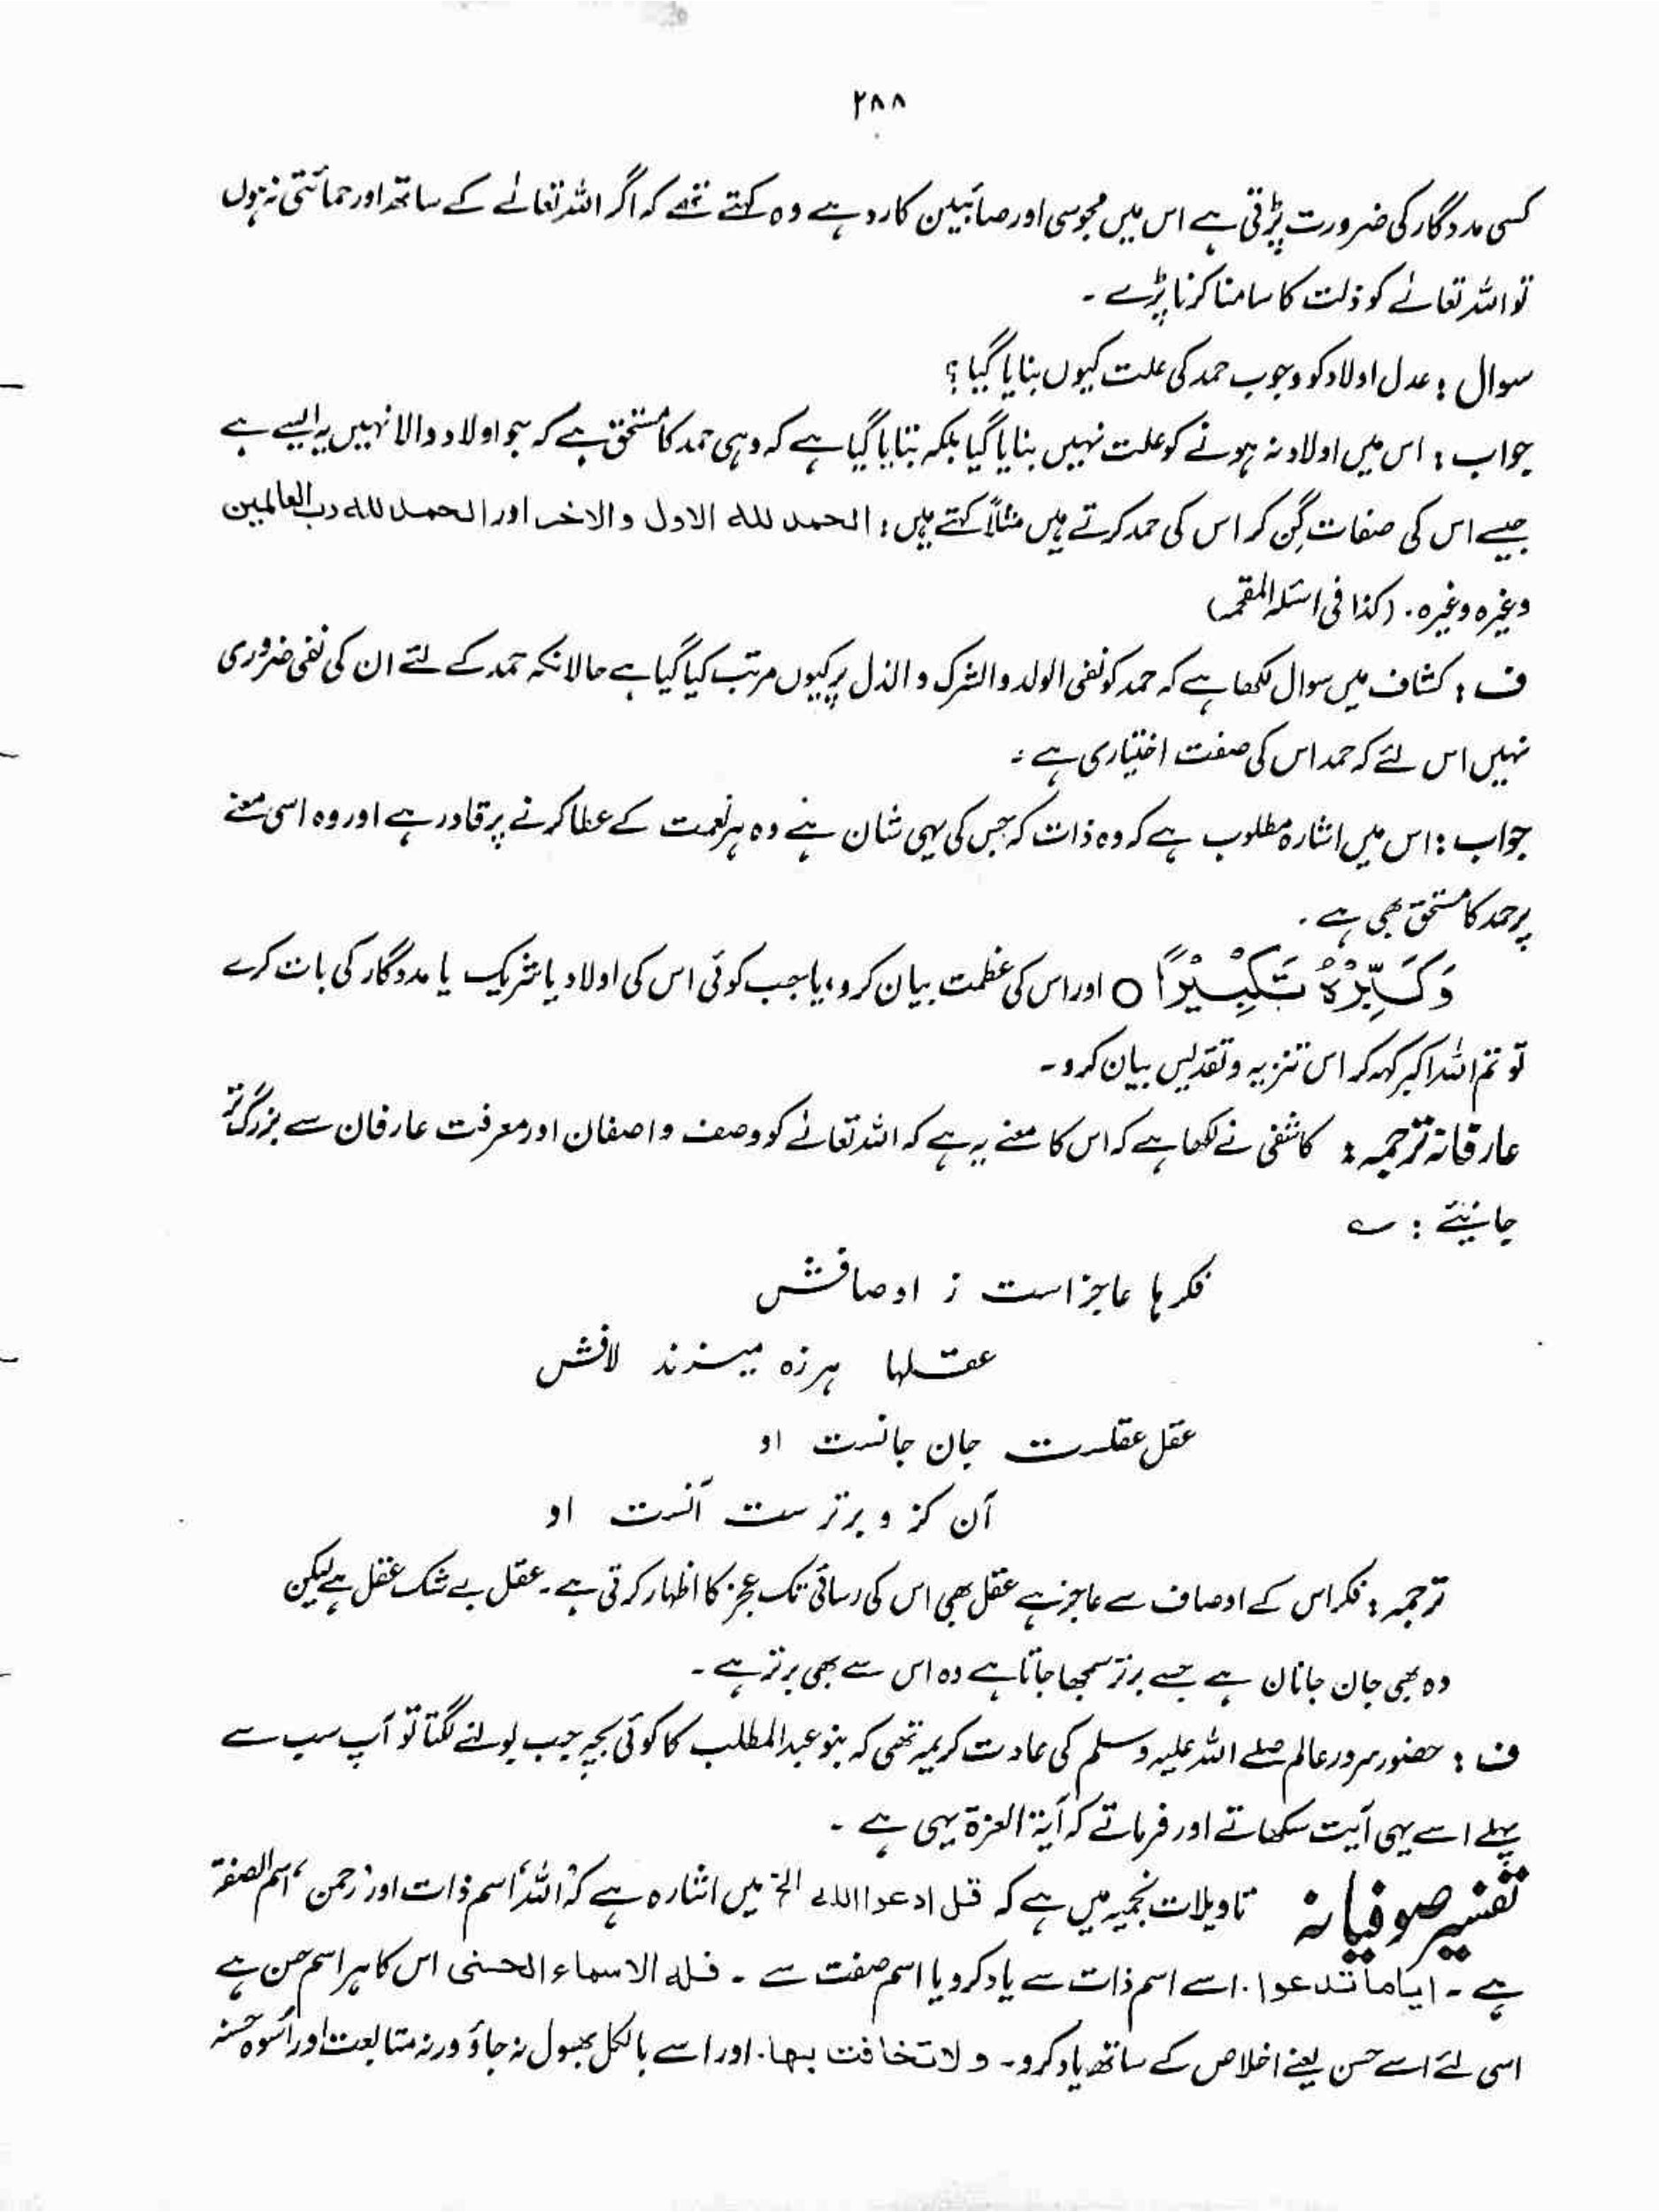 ۲۸۸
کسی مددگار کی ضرورت پڑتی ہے اس میں مجوسی اور صائبین کا رد ہے وہ کہتے تھے کہ اگر اللہ تعالےٰ کے ساتھ اور حمائتی نہ ہوں
تو اللہ تعالےٰ کو ذلت کا سامنا کرنا پڑے ۔
سوال : عدل اولاد کو وجوب حمد کی علت کیوں بنایا گیا ؟
جواب : اس میں اولاد نہ ہونے کو علت نہیں بنایا گیا بلکہ بتایا گیا ہے کہ وہی حمد کا مستحق ہے کہ جو اولاد والا نہیں یہ ایسے ہے
جیسے اس کی صفات گِن کر اس کی حمد کرتے ہیں مثلاً کہتے ہیں : الحمد للہ الاول والاخر اور الحمد للہ رب العالمین
وغیرہ وغیرہ . (کذا فی اسئلۃ المقحمہ)
ف : کشاف میں سوال لکھا ہے کہ حمد کو نفی الولد والشرک والذل پر کیوں مرتب کیا گیا ہے حالانکہ حمد کے لئے ان کی نفی ضروری
نہیں اس لئے کہ حمد اس کی صفت اختیاری ہے :
جواب : اس میں اشارہ مطلوب ہے کہ وہ ذات کہ جس کی یہی شان ہے وہ ہر نعمت کے عطا کرنے پر قادر ہے اور وہ اسی معنے
پر حمد کا مستحق بھی ہے .
وَكَبِّرْهُ تَكْبِيْرًا ○ اور اس کی عظمت بیان کرو، یا جب کوئی اس کی اولاد یا شریک یا مددگار کی بات کرے
تو تم اللہ اکبر کہہ کر اس تنزیہ و تقدیس بیان کرو ۔
عارفانہ ترجمہ : کاشفی نے لکھا ہے کہ اس کا معنے یہ ہے کہ اللہ تعالےٰ کو وصف واصفان اور معرفت عارفان سے بزرگ تر
جانیئے : ؎
فکر ہا عاجز است ز اوصافش
عقلہا ہرزہ میزند لافش
عقل عقلست جان جانست او
آن کز و برتر ست آنست او
ترجمہ : فکر اس کے اوصاف سے عاجز ہے عقل بھی اس کی رسائی تک عجز کا اظہار کرتی ہے ۔ عقل بے شک عقل ہے لیکن
وہ بھی جان جانان ہے جسے برتر سمجھا جاتا ہے وہ اس سے بھی برتر ہے ۔
ف : حضور سرور عالم صلے اللہ علیہ وسلم کی عادت کریمہ تھی کہ بنو عبدالمطلب کا کوئی بچہ جب بولنے لگتا تو آپ سب سے
پہلے اسے یہی آیت سکھاتے اور فرماتے کہ آیۃ العزۃ یہی ہے ۔
تفسیر صوفیانہ تاویلات نجمیہ میں ہے کہ قل ادعوا اللہ الخ میں اشارہ ہے کہ 'اللہ' اسم ذات اور 'رحمن' اسم الصفۃ
ہے ۔ ایا ما تدعوا . اسے اسم ذات سے یاد کرو یا اسم صفت سے ۔ فلہ الاسماء الحسنی اس کا ہر اسم حسن ہے
اسی لئے اسے حسن یعنے اخلاص کے ساتھ یاد کرو ۔ ولا تخافت بہا . اور اسے بالکل بھول نہ جاؤ ورنہ متابعت اور اُسوہ حسنہ